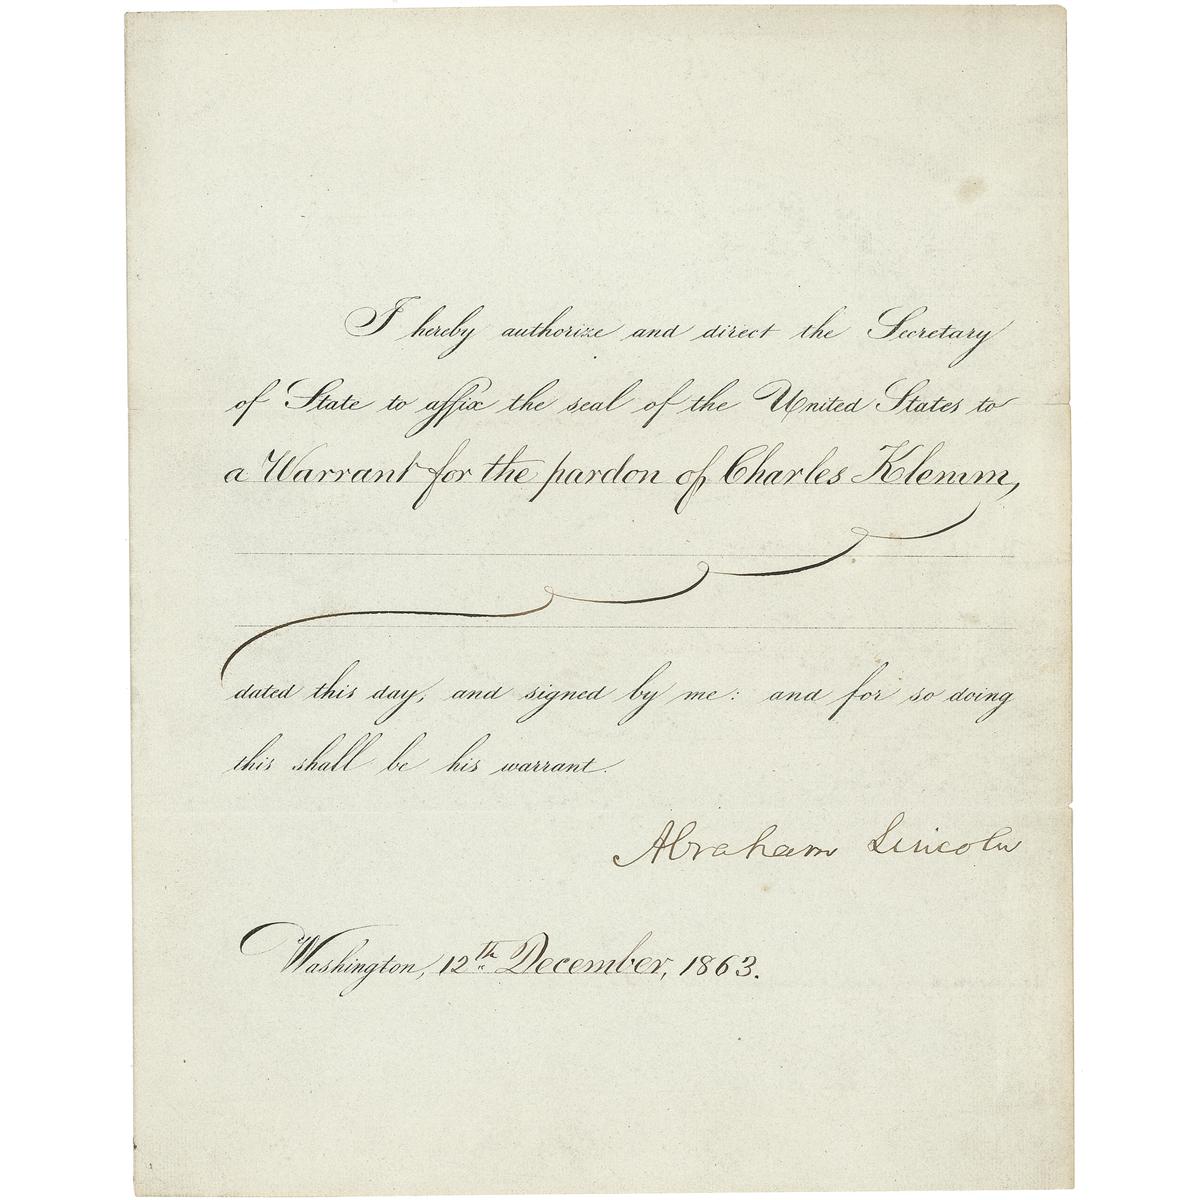 I hereby authorize and direct the Secretary
of State to affix the seal of the United States to
a Warrant for the pardon of Charles Klemm,
dated this day, and signed by me: and for so doing
this shall be his warrant.
Abraham Lincoln
Washington, 12th December, 1863.